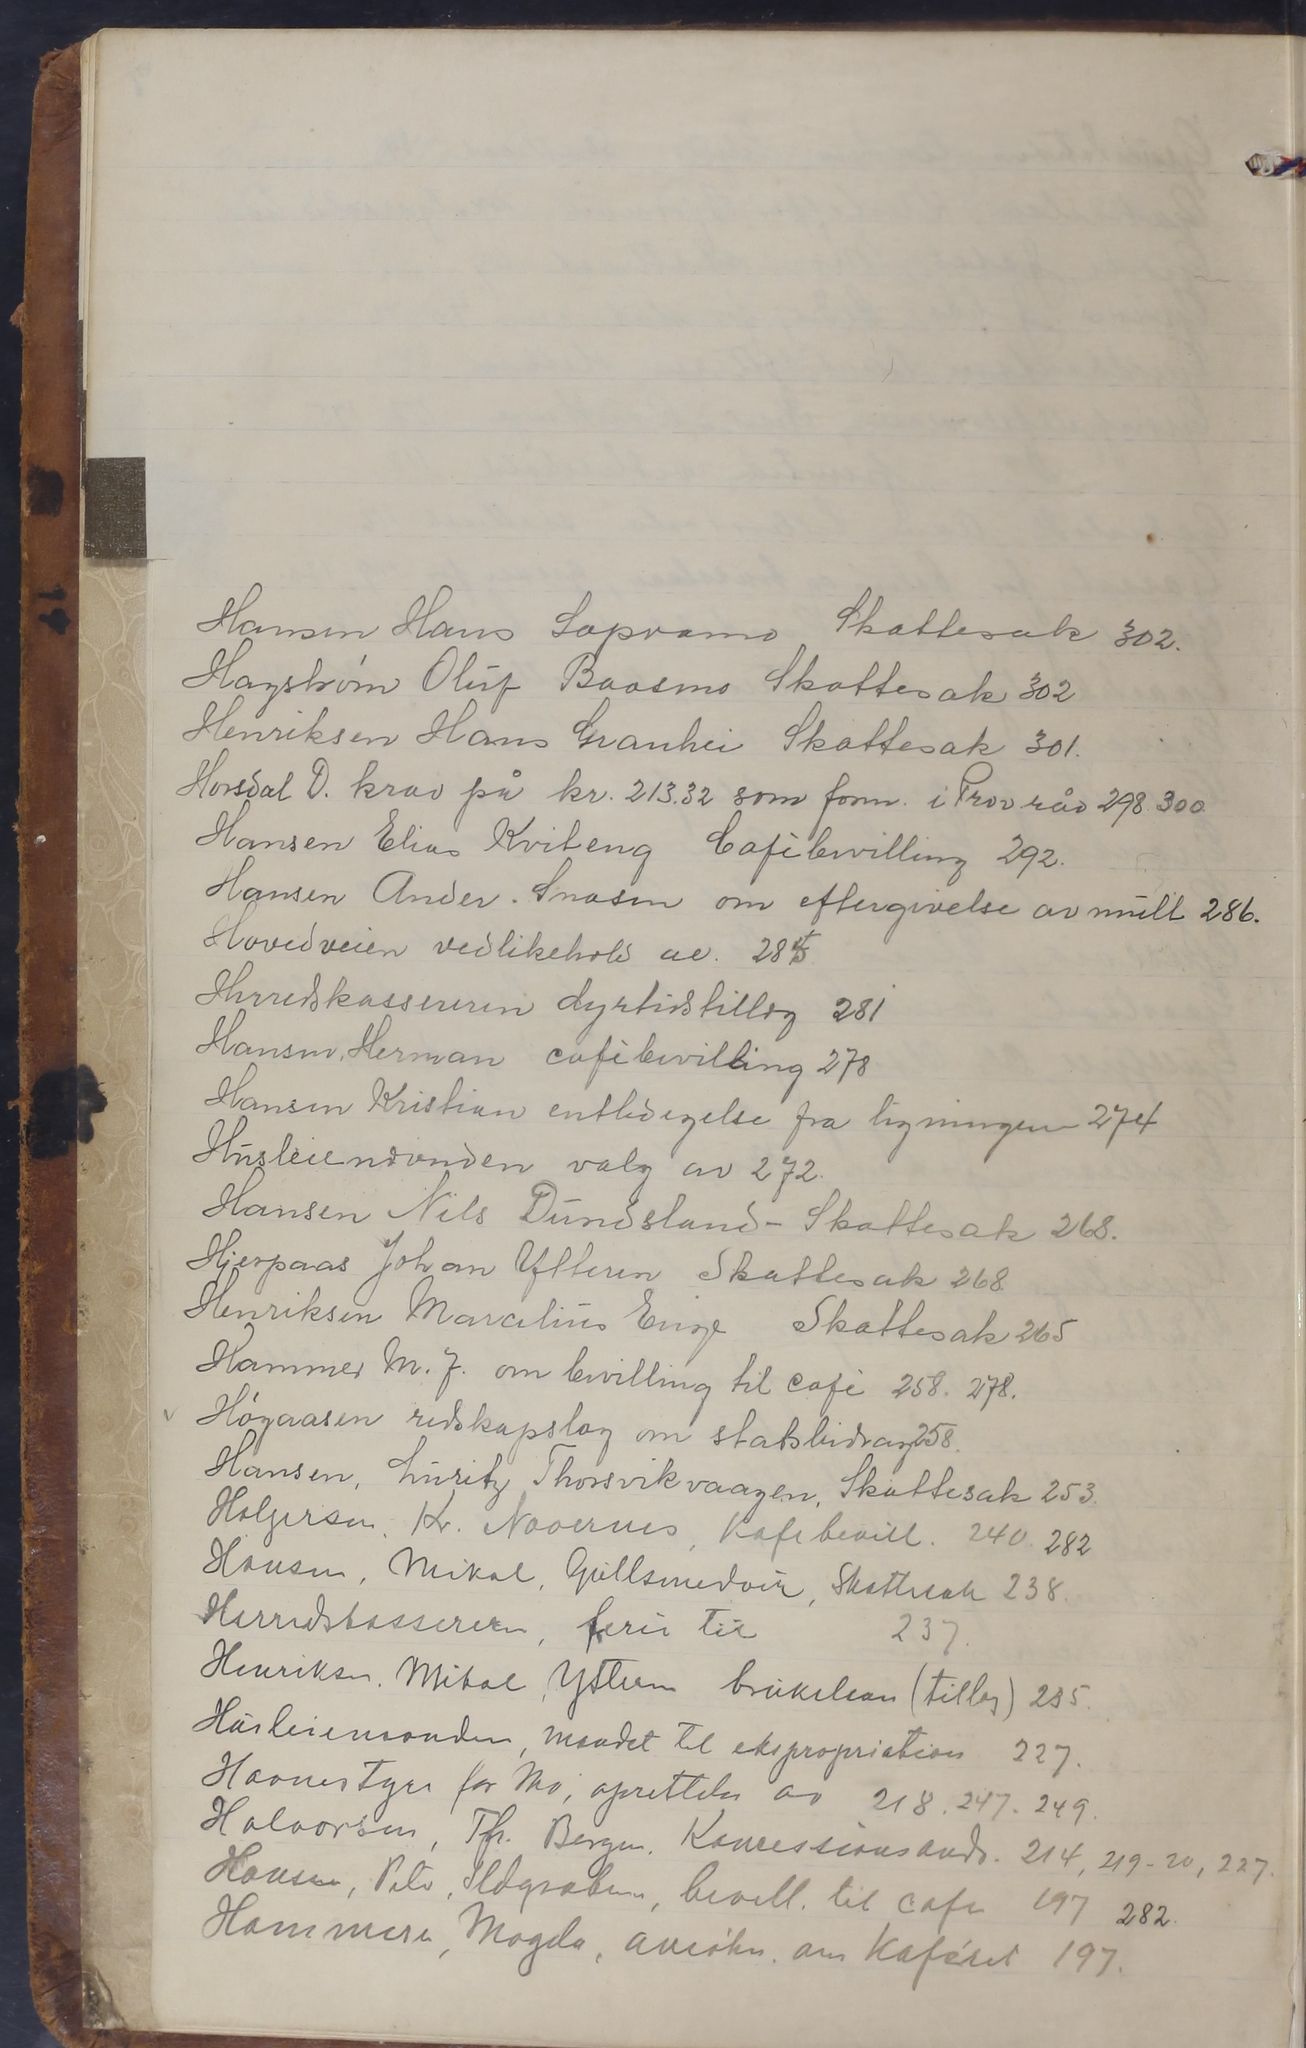 Hansen Hans Sapramo Skattesak 302.
Hagstrøm Oluf Baasmo Skattesak 302
Henriksen Hans Granhei Skattesak 301.
Horsdal D. krav på kr. 213.32 som form. i Prov råd 298 300
Hansen Elias Kviteng Cafèbevilling 292.
Hansen Ander. Snasen om eftergivelse av mult 286.
Hovedveien vedlikehold av. 285
Herredskassereren dyrtidstillæg 281
Hansen, Herman cafèbevilling 278
Hansen Kristian entledigelse fra ligningen 274
Husleienævnden valg av 272.
Hansen Nils Dundsland - Skattesak 268.
Hjerpaas Johan Ytteren Skattesak 268
Henriksen Marcelius Skattesak 265
Hammer M. J. om bevilling til cafè 258. 278.
Høgaasen redskapslag om statsbidrag 258.
Hansen, Luritz Thorsvikvaagen, Skattesak 253.
Holgersen, Kr. Naevernes, Kafebevill. 240. 282
Hansen, Mikal, Gullsmedvik, Skattesak 238.
Herredskassereren, ferie til 237.
Henriksen, Mikal, Ytteren bruklaan (tillæg) 235.
Husleienævnden, mandat til ekspropriation 227.
Havnestyre for Mo, oprettelse av 218. 247. 249.
Halvorsen, Th. Bergen, Koncessionsands. 214, 219-20, 227.
Hansen, Peder, Ildgruben, bevill. til cafe 197 282.
Hammeren, Magda, ansøkn. om Kaféret 197.